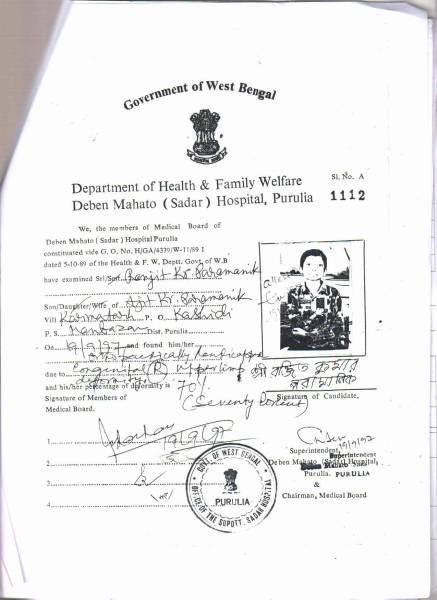 Government of West Bengal
Department of Health & Family Welfare
Deben Mahato ( Sadar ) Hospital, Purulia
Sl. No. A
1112
We, the members of Medical Board of
Deben Mahato ( Sadar ) Hospital Purulia
constituted vide G. O. No. H/GA/4339/W-11/89 I
dated 5-10-89 of the Health & F. W. Deptt. Govt, of W.B
have examined Sri/Smt. Ranjit Kr. Paramanik
Son/Daughter/Wife of Ajit Kr. Paramanik
Vill Karmatar P. O. Kashidi
P. S. Manbazar Dist, Purulia
On 19/9/97 and found him/her
Orthopaedically handicapped
due to Congenital (R) upper limb
deformity
and his/her percentage of deformity is 70%
(Seventy Percent)
শ্রী রঞ্জিত কুমার
পরামানিক
Signature of Candidate,
Signature of Members of
Medical Board,
1
19/9/97
2
3
4
GOVT. OF WEST BENGAL
PURULIA
OFFICE OF THE SUPDTT. SADAR HOSPITAL
19/9/97
Superintendent,
Superintendent
Deben Mahato (Sadar) Hospital,
Deben Mahato Sadar
Purulia. PURULIA
&
Chairman, Medical Board